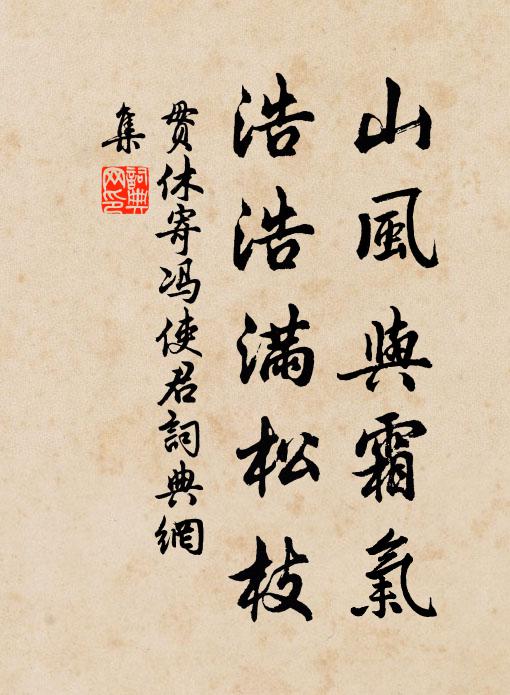 山風與霜氣
浩浩滿松枝
贯休寄冯使君詞典網
集
詞典
网印